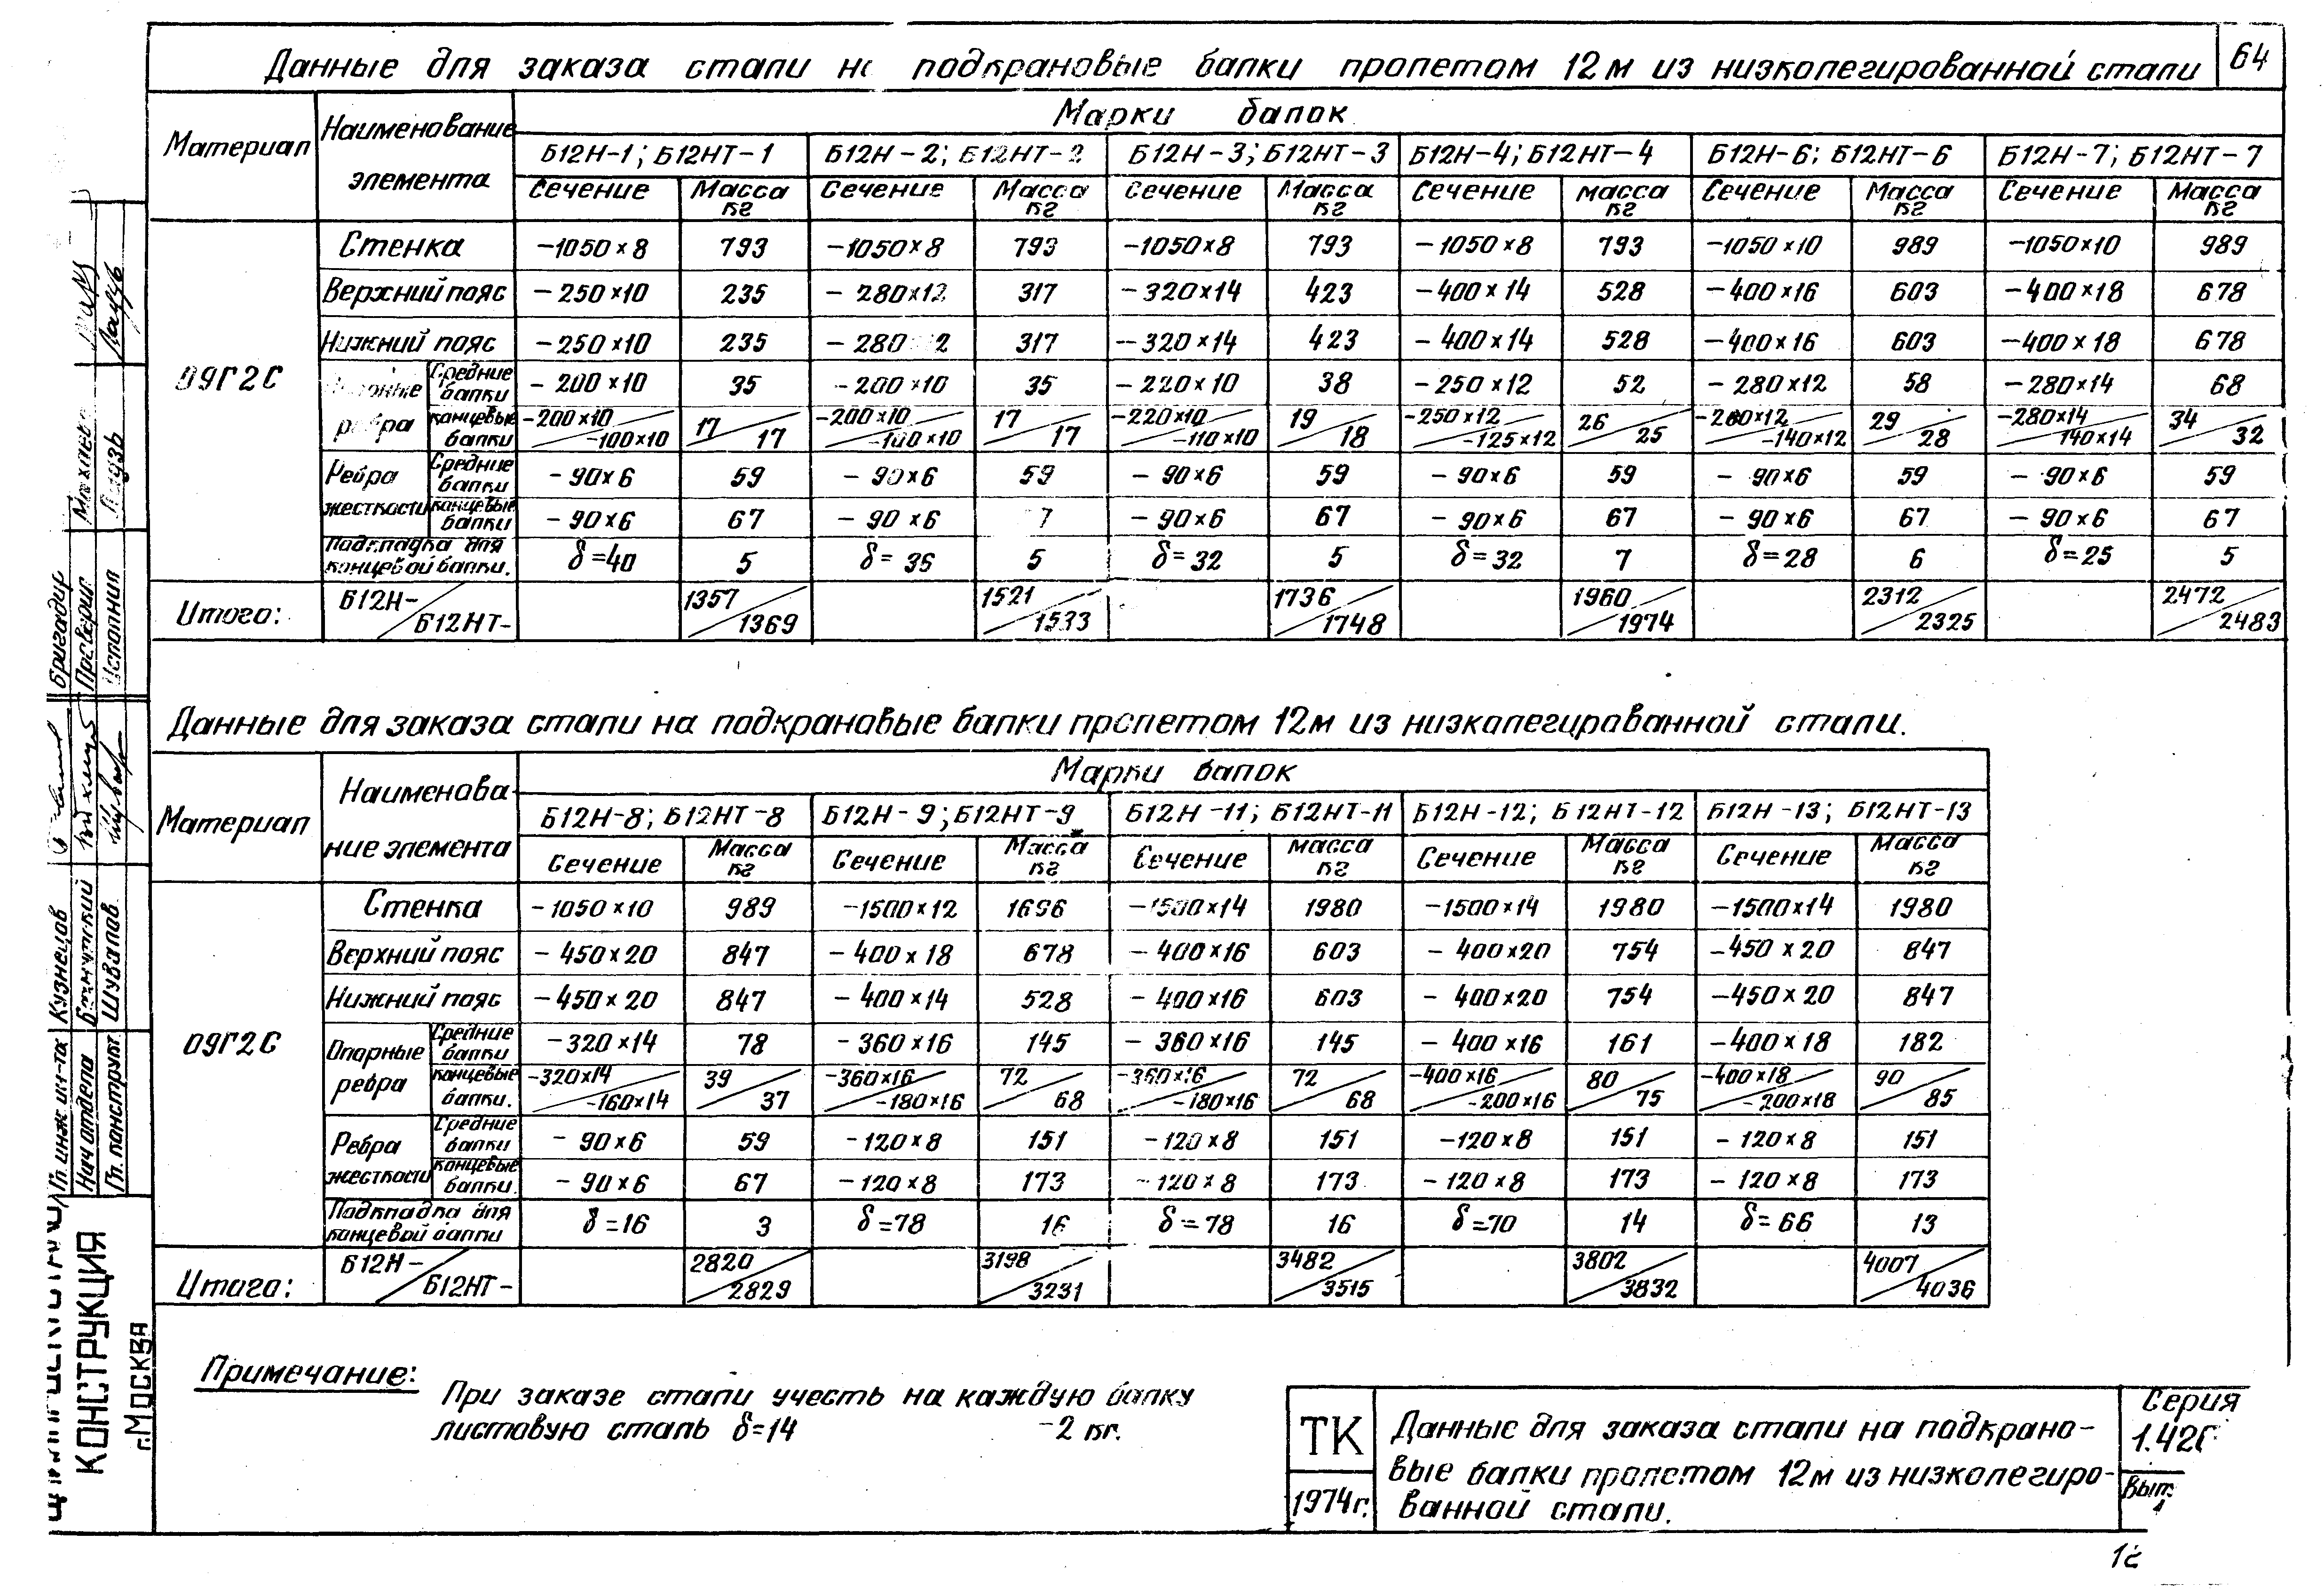 Данные для заказа стали на подкрановые балки пролетом 12м из низколегированной стали 64
Материал Наименование элемента Марки балок
Б12Н-1; Б12НТ-1 Б12Н-2; Б12НТ-2 Б12Н-3; Б12НТ-3 Б12Н-4; Б12НТ-4 Б12Н-6; Б12НТ-6 Б12Н-7; Б12НТ-7
Сечение Масса кг Сечение Масса кг Сечение Масса кг Сечение масса кг Сечение Масса кг Сечение Масса кг
09Г2С
Стенка -1050×8 793 -1050×8 793 -1050×8 793 -1050×8 793 -1050×10 989 -1050×10 989
Верхний пояс -250×10 235 -280×12 317 -320×14 423 -400×14 528 -400×16 603 -400×18 678
Нижний пояс -250×10 235 -280 2 317 -320×14 423 -400×14 528 -400×16 603 -400×18 678
ребра Средние балки -200×10 35 -200×10 35 -220×10 38 -250×12 52 -280×12 58 -280×14 68
концевые балки -200×10/-100×10 17/17 -200×10/-100×10 17/17 -220×10/-110×10 19/18 -250×12/-125×12 26/25 -280×12/-140×12 29/28 -280×14/140×14 34/32
Ребра жесткости Средние балки -90×6 59 -90×6 59 -90×6 59 -90×6 59 -90×6 59 -90×6 59
концевые балки -90×6 67 -90×6 7 -90×6 67 -90×6 67 -90×6 67 -90×6 67
Подкладка для концевой балки. δ=40 5 δ=36 5 δ=32 5 δ=32 7 δ=28 6 δ=25 5
Итого: Б12Н-/Б12НТ- 1357/1369 1521/1533 1736/1748 1960/1974 2312/2325 2472/2483
Данные для заказа стали на подкрановые балки пролетом 12м из низколегированной стали.
Материал Наименова- ние элемента Марки балок
Б12Н-8; Б12НТ-8 Б12Н-9; Б12НТ-9 Б12Н-11; Б12НТ-11 Б12Н-12; Б12НТ-12 Б12Н-13; Б12НТ-13
Сечение Масса кг Сечение Масса кг Сечение масса кг Сечение Масса кг Сечение Масса кг
09Г2С
Стенка -1050×10 989 -1500×12 1696 -1500×14 1980 -1500×14 1980 -1500×14 1980
Верхний пояс -450×20 847 -400×18 678 -400×16 603 -400×20 754 -450×20 847
Нижний пояс -450×20 847 -400×14 528 -400×16 603 -400×20 754 -450×20 847
Опорные ребра Средние балки -320×14 78 -360×16 145 -360×16 145 -400×16 161 -400×18 182
концевые балки. -320×14/-160×14 39/37 -360×16/-180×16 72/68 -360×16/-180×16 72/68 -400×16/-200×16 80/75 -400×18/-200×18 90/85
Ребра жесткости Средние балки -90×6 59 -120×8 151 -120×8 151 -120×8 151 -120×8 151
концевые балки. -90×6 67 -120×8 173 -120×8 173 -120×8 173 -120×8 173
Подкладка для концевой балки δ=16 3 δ=78 16 δ=78 16 δ=70 14 δ=66 13
Итого: Б12Н-/Б12НТ- 2820/2829 3198/3231 3482/3515 3802/3832 4007/4036
Примечание:
При заказе стали учесть на каждую балку
листовую сталь δ=14 -2 кг.
ТК
1974г.
Данные для заказа стали на подкрано-
вые балки пролетом 12м из низколегиро-
ванной стали.
Серия
1.42
Вып.
Бригадир
Проверил
Исполнил
Гл. инж. ин-та Кузнецов
Нач отдела
Гл. конструкт. Шувалов
КОНСТРУКЦИЯ
г.Москва